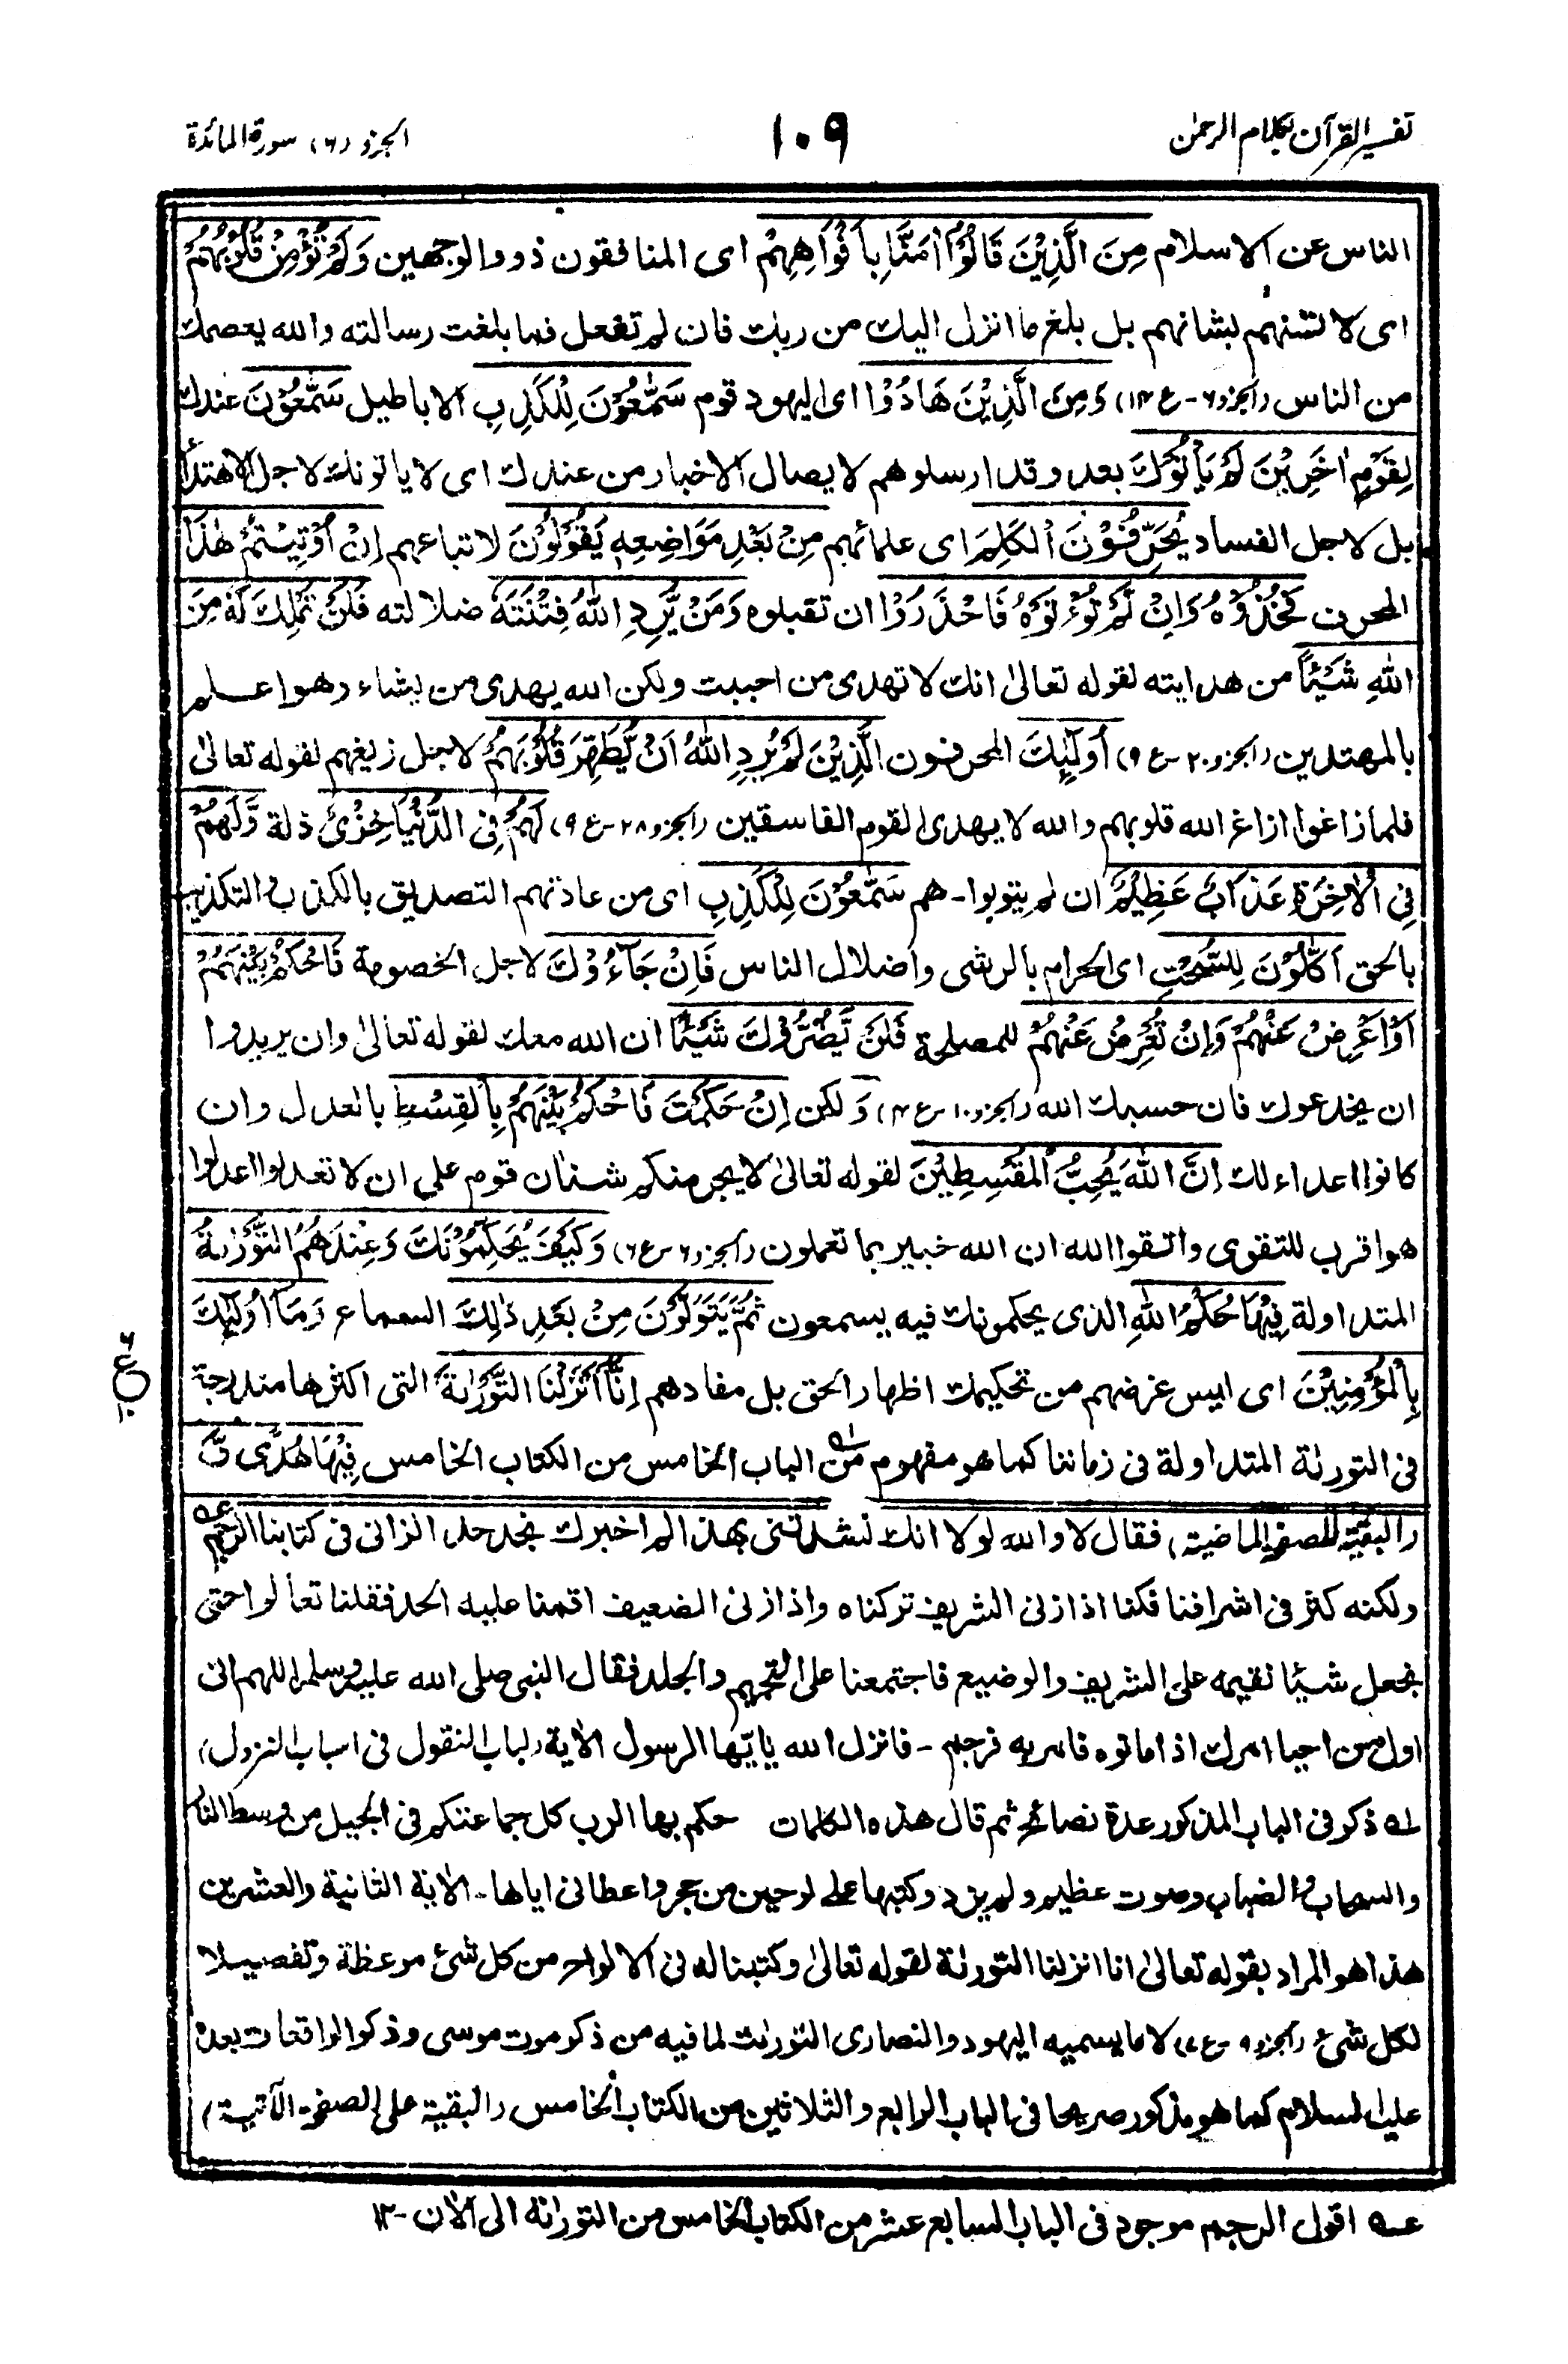 تفسير القرآن بكلام الرحمن
١٠٩
الجزو (٦) سورة المائدة
الناس عن الاسلام مِنَ الَّذِيْنَ قَالُوْٓا اٰمَنَّا بِاَفْوَاهِهِمْ اى المنافقون ذووالوجهين وَلَمْ تُؤْمِنْ قُلُوْبُهُمْ
اى لا تشنهم بشانهم بل بلغ ما انزل اليك من ربك فان لم تفعل فما بلغت رسالته والله يعصمك
من الناس (الجزو ٦ - ع ١٤) وَمِنَ الَّذِيْنَ هَادُوْا اى اليهود قوم سَمّٰعُوْنَ لِلْكَذِبِ الاباطيل سَمّٰعُوْنَ عندك
لِقَوْمٍ اٰخَرِيْنَ لَمْ يَاْتُوْكَ بعد وقد ارسلوهم لايصال الاخبار من عندك اى لا ياتونك لاجل الاهتداء
بل لاجل الفساد يُحَرِّفُوْنَ الْكَلِمَ اى علمائهم مِنْ بَعْدِ مَوَاضِعِهٖ يَقُوْلُوْنَ لاتباعهم اِنْ اُوْتِيْتُمْ هٰذَا
المحرف فَخُذُوْهُ وَاِنْ لَّمْ تُؤْتَوْهُ فَاحْذَرُوْا ان تقبلوه وَمَنْ يُّرِدِ اللّٰهُ فِتْنَتَهٗ ضلالته فَلَنْ تَمْلِكَ لَهٗ مِنَ
اللّٰهِ شَيْئًا من هدايته لقوله تعالىٰ انك لا تهدى من احببت ولكن الله يهدى من يشاء وهو اعلم
بالمهتدين (الجزو ٢٠ - ع ٩) اُولٰٓئِكَ المحرفون الَّذِيْنَ لَمْ يُرِدِ اللّٰهُ اَنْ يُّطَهِّرَ قُلُوْبَهُمْ لاجل زيغهم لقوله تعالىٰ
فلما زاغوا ازاغ الله قلوبهم والله لا يهدى القوم الفاسقين (الجزو ٢٨ - ع ٩) لَهُمْ فِى الدُّنْيَا خِزْىٌ ذلة وَّلَهُمْ
فِى الْاٰخِرَةِ عَذَابٌ عَظِيْمٌ ان لم يتوبوا - هم سَمّٰعُوْنَ لِلْكَذِبِ اى من عادتهم التصديق بالكذب والتكذيب
بالحق اَكّٰلُوْنَ لِلسُّحْتِ اى الحرام بالرشى واضلال الناس فَاِنْ جَآءُوْكَ لاجل الخصومة فَاحْكُمْ بَيْنَهُمْ
اَوْ اَعْرِضْ عَنْهُمْ وَاِنْ تُعْرِضْ عَنْهُمْ للمصلحة فَلَنْ يَّضُرُّوْكَ شَيْئًا ان الله معك لقوله تعالىٰ وان يريدوا
ان يخدعوك فان حسبك الله (الجزو ١٠ - ع ٤) وَلكن اِنْ حَكَمْتَ فَاحْكُمْ بَيْنَهُمْ بِالْقِسْطِ بالعدل وان
كانوا اعداء لك اِنَّ اللّٰهَ يُحِبُّ الْمُقْسِطِيْنَ لقوله تعالىٰ لا يجرمنكم شنئان قوم على ان لا تعدلوا اعدلوا
هو اقرب للتقوى واتقوا الله ان الله خبير بما تعملون (الجزو ٦ - ع ٦) وَكَيْفَ يُحَكِّمُوْنَكَ وَعِنْدَهُمُ التَّوْرٰىةُ
المتداولة فِيْهَا حُكْمُ اللّٰهِ الذى يحكمونك فيه يسمعون ثُمَّ يَتَوَلَّوْنَ مِنْ بَعْدِ ذٰلِكَ السماع وَمَآ اُولٰٓئِكَ
بِالْمُؤْمِنِيْنَ اى ليس غرضهم من تحكيمك اظهار الحق بل مفادهم اِنَّآ اَنْزَلْنَا التَّوْرٰىةَ التى اكثرها مندرجة
فى التورىٰة المتداولة فى زماننا كما هو مفهوم من الباب الخامس من الكتاب الخامس فِيْهَا هُدًى وَّ
(البقية للصفح الماضية) فقال لا والله لولا انك نشدتنى بهذا لم اخبرك نجد حد الزانى فى كتابنا الرجم
ولكنه كثر فى اشرافنا فكنا اذا زنى الشريف تركناه واذا زنى الضعيف اقمنا عليه الحد فقلنا تعالوا حتى
نجعل شيئا نقيمه على الشريف والوضيع فاجتمعنا على التحميم والجلد فقال النبى صلى الله عليه وسلم اللهم انى
اول من احيا امرك اذ اماتوه فامر به فرجم - فانزل الله يايّها الرسول الاٰية (لباب النقول فى اسباب النزول)
لـه ذكر فى الباب المذكور عدة نصائح ثم قال هذه الكلمات حكم بها الرب كل جماعتكم فى الجبل من وسط النار
والسحاب والضباب وصوت عظيم ولم يزد وكتبها على لوحين من حجر واعطانى اياها - الاٰية الثانية والعشرين
هذا هو المراد بقوله تعالىٰ انا انزلنا التورىٰة لقوله تعالىٰ وكتبنا له فى الالواح من كل شئ موعظة وتفصيلا
لكل شئ (الجزو ٩ - ع ٧) لا ما يسميه اليهود والنصارى التورىٰت لما فيه من ذكر موت موسى وذكر الواقعات بعده
عليه السلام كما هو مذكور صريحا فى الباب الرابع والثلاثين من الكتاب الخامس (البقية على الصفح الآتية)
عـه اقول الرجم موجود فى الباب السابع عشر من الكتاب الخامس من التورىٰة الى الاٰن - ١٢